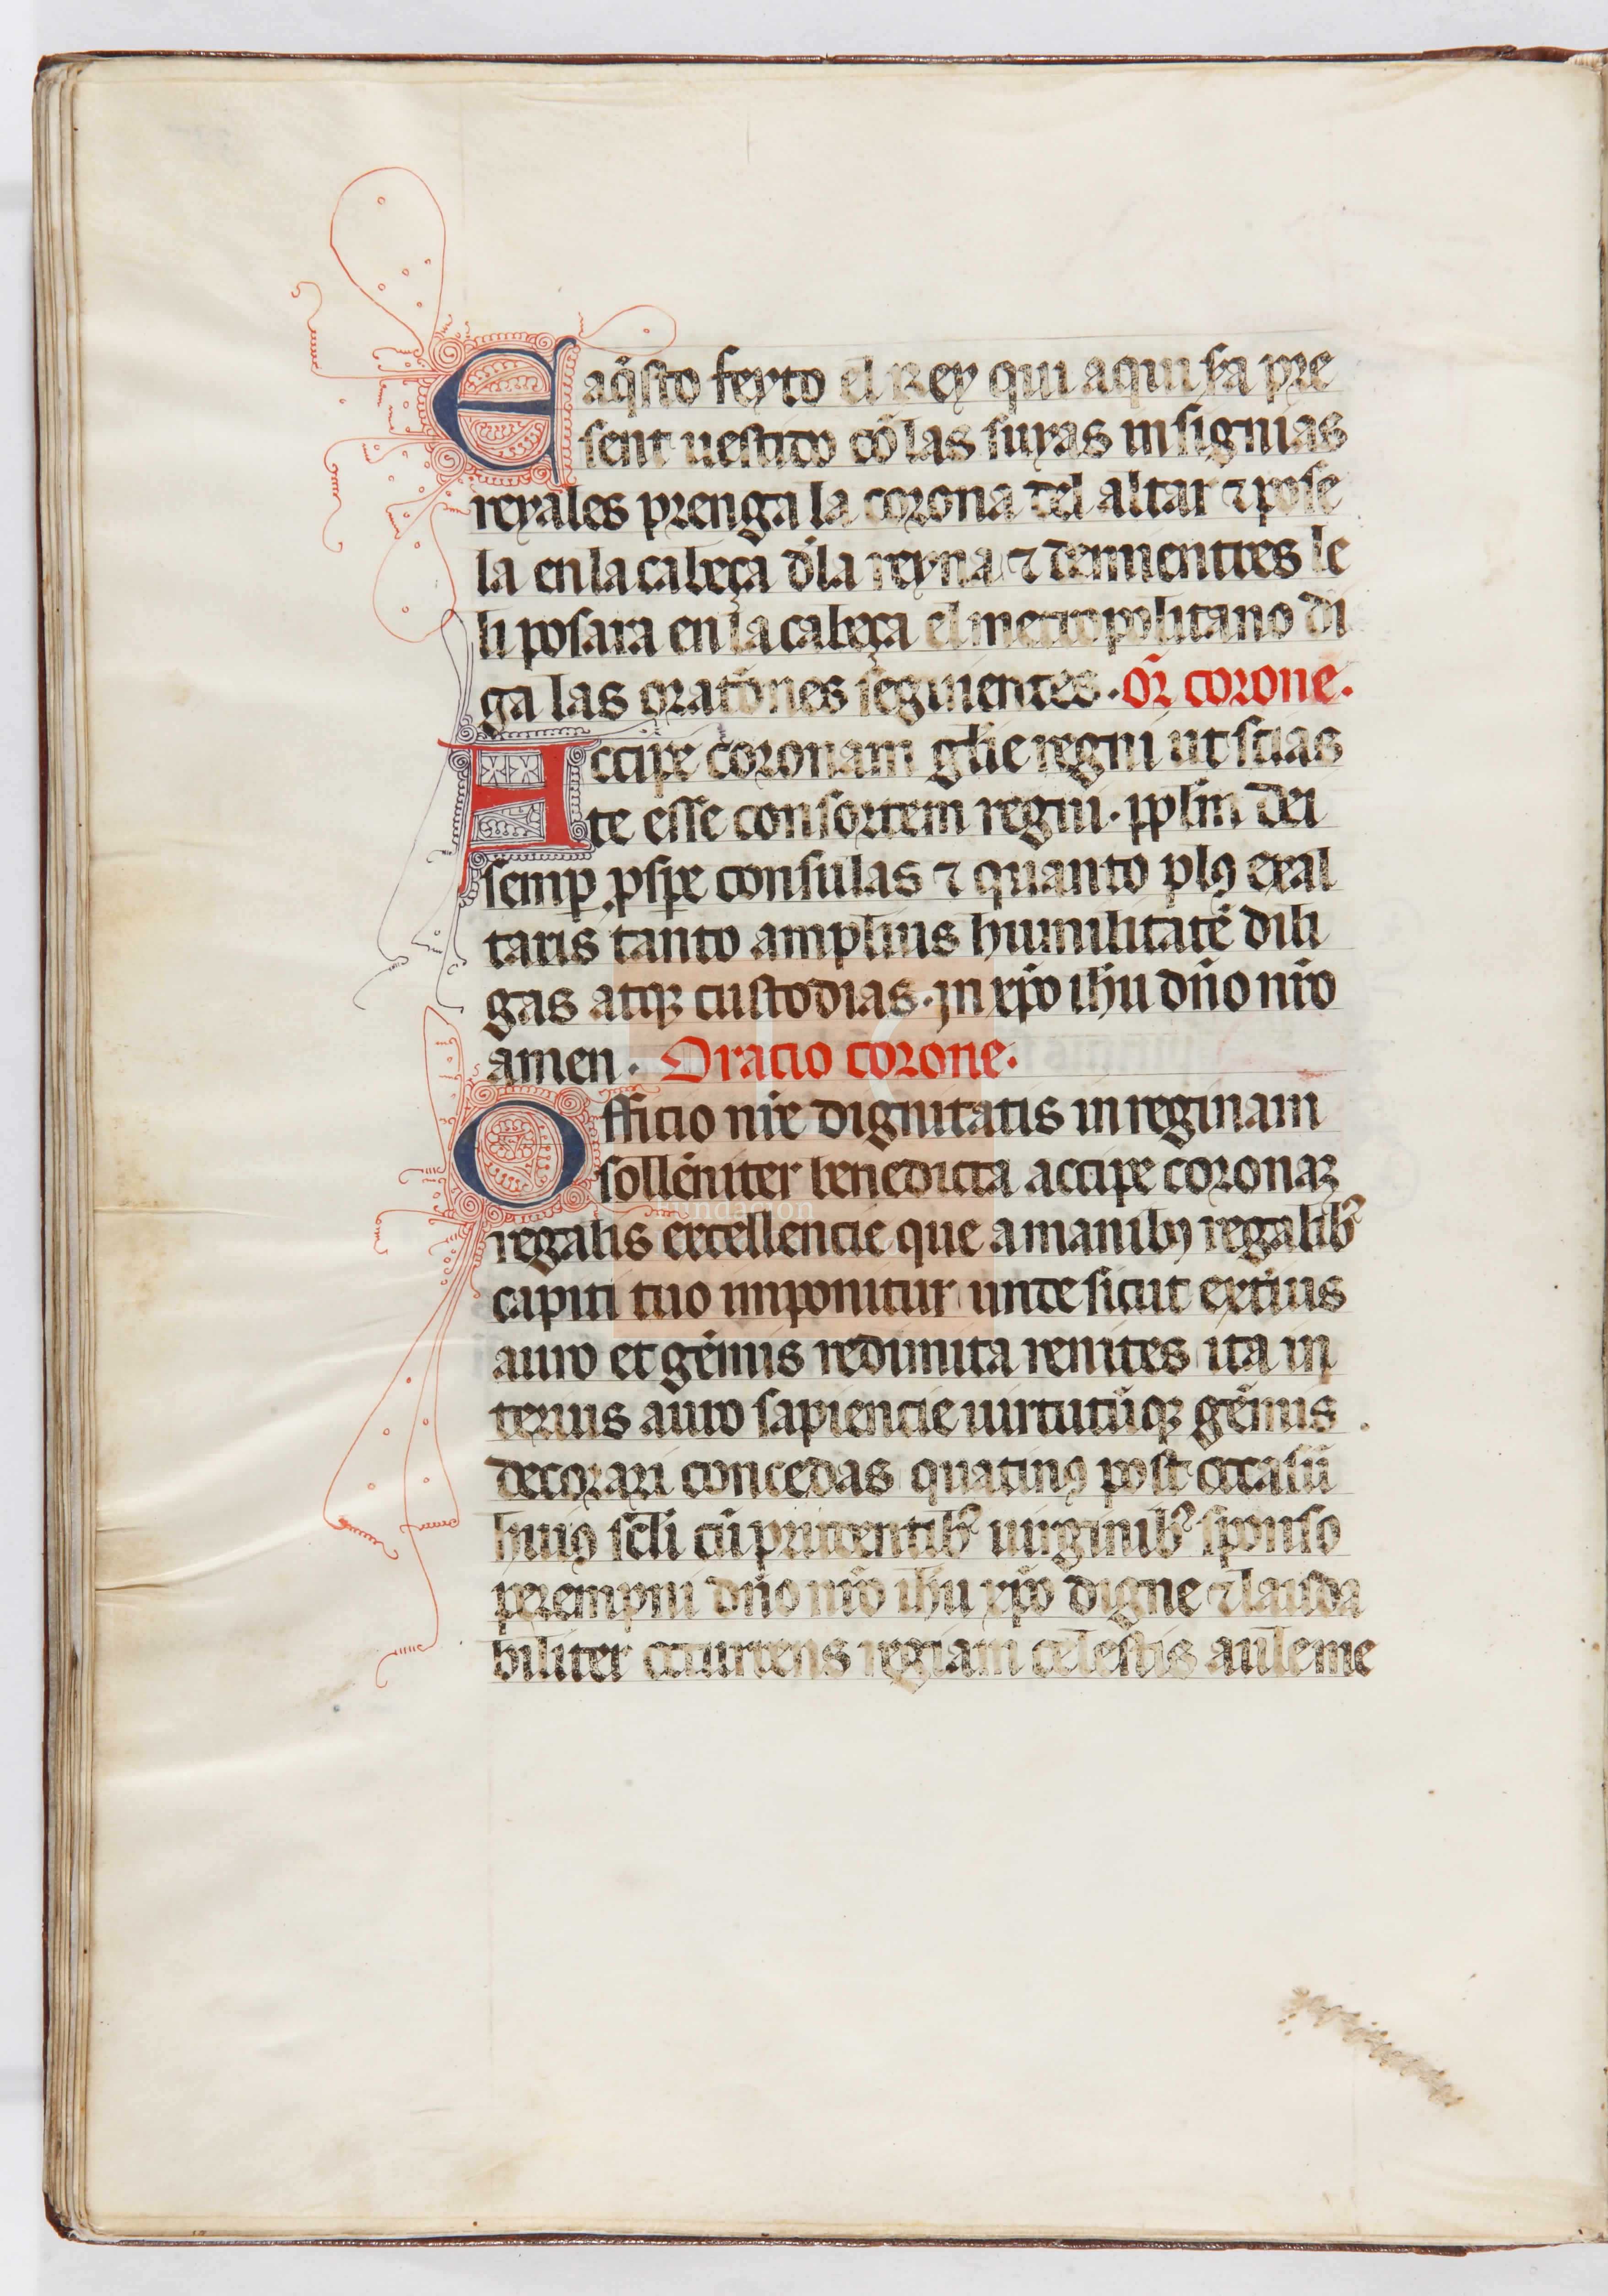 E aq̃sto feyto el Rey qui aqui sia pre
sent uestido cõ las suyas insignias
reyales prenga la corona del altar ⁊ pose
la en la cabeça d'la reyna ⁊ demientres le
li posara en la cabeça el metropolitano di
ga las orationes seguientes. or̃ corone.
Accipe coronam gl̃ie regni ut scias
te esse consortem regni. pplm̃ dei
semp ꝓspe consulas ⁊ quanto plꝰ exal
taris tanto amplius humilitatẽ dili
gas atqꝫ custodias. in xp̃o ihũ dño nr̃o
amen. Oratio corone.
Officio nr̃e dignitatis in reginam
sollẽniter benedicta accipe coronaꝫ
regalis excellencie que a manibꝰ regalibꝫ
capiti tuo imponitur unde sicut exterius
auro et gẽmis redimita renites ita in
terius auro sapiencie uirtutũqꝫ gẽmis
decorari concedas quatinꝰ post occasũ
huiꝰ scl̃i cũ prudentibꝫ uirginibꝫ sponso
perempni dño nr̃o ihũ xp̃o digne ⁊ lauda
biliter occurrens regiam celestis aule me
fundación